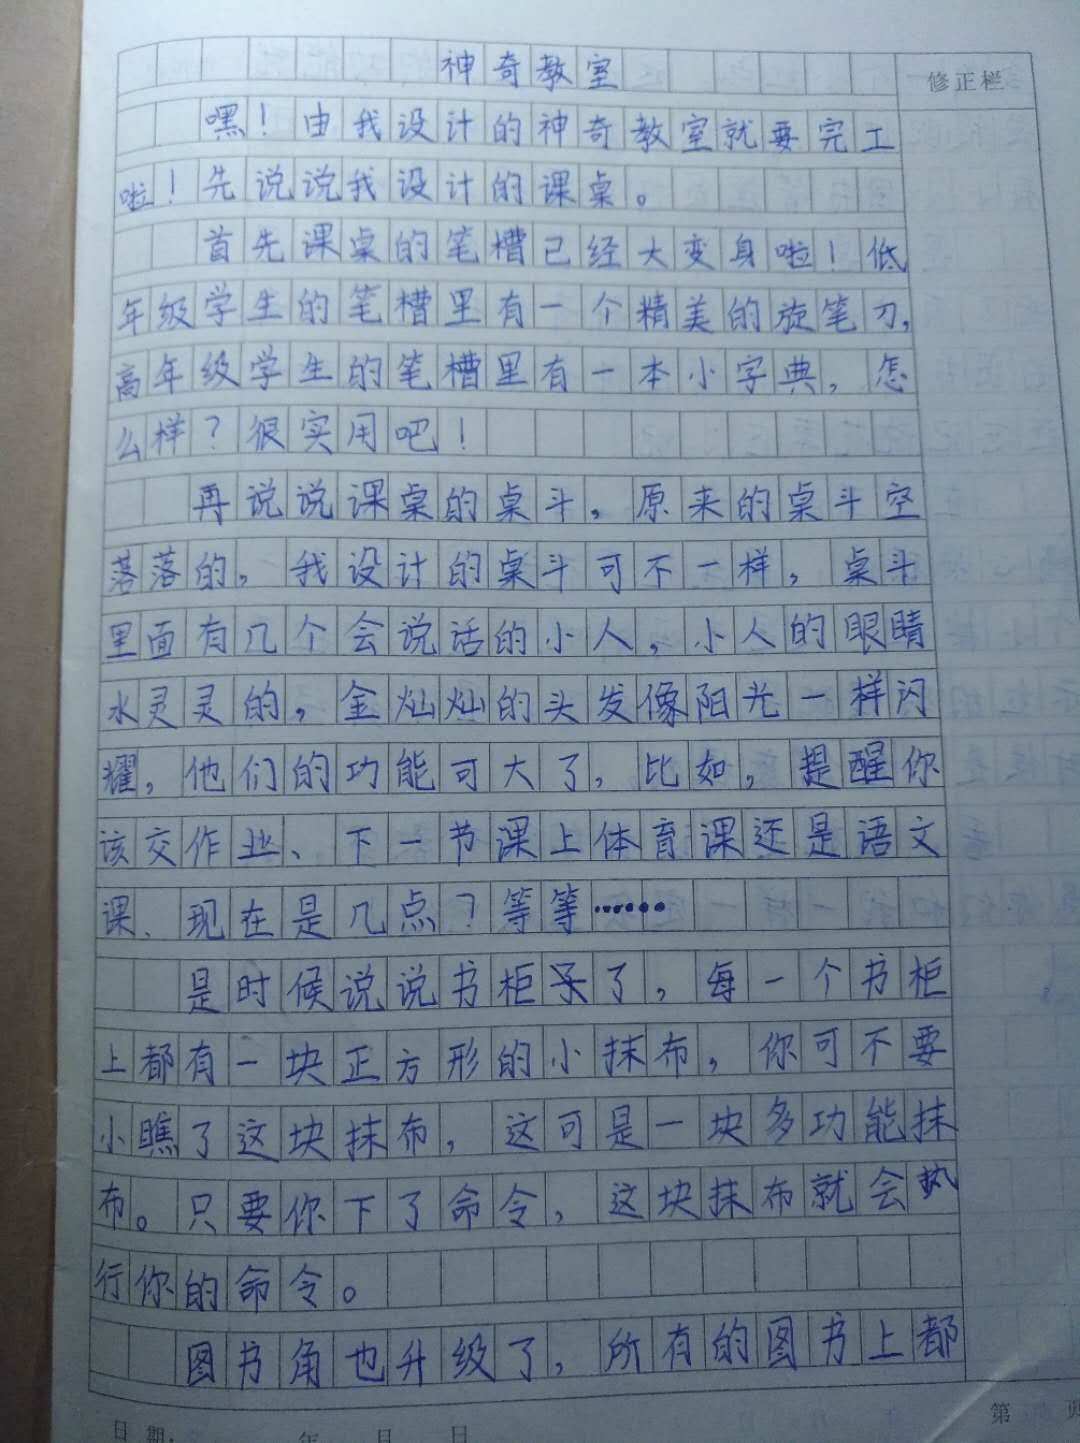 神奇教室
修正栏
嘿！由我设计的神奇教室就要完工
啦！先说说我设计的课桌。
首先课桌的笔槽已经大变身啦！低
年级学生的笔槽里有一个精美的旋笔刀，
高年级学生的笔槽里有一本小字典，怎
么样？很实用吧！
再说说课桌的桌斗，原来的桌斗空
落落的，我设计的桌斗可不一样，桌斗
里面有几个会说话的小人，小人的眼睛
水灵灵的，金灿灿的头发像阳光一样闪
耀，他们的功能可大了，比如，提醒你
该交作业、下一节课上体育课还是语文
课、现在是几点？等等……
是时候说说书柜了，每一个书柜
上都有一块正方形的小抹布，你可不要
小瞧了这块抹布，这可是一块多功能抹
布。只要你下了命令，这块抹布就会执
行你的命令。
图书角也升级了，所有的图书上都
日期： 年 月 日
第 页